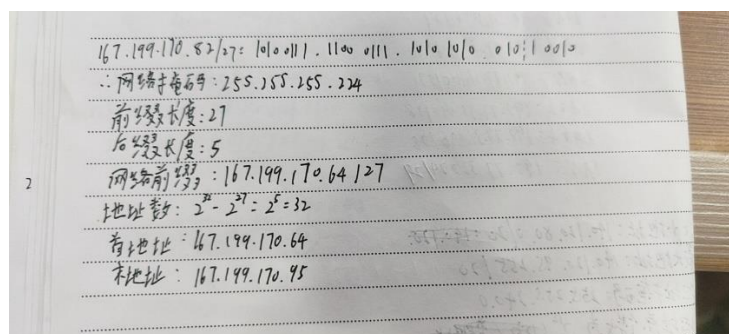 167.199.170.82/27: 1010 0111 . 1100 0111 . 1010 1010 . 010¦1 0010
∴网络掩码: 255.255.255.224
前缀长度: 27
后缀长度: 5
网络前缀: 167.199.170.64/27
2
地址数: 2³² - 2²⁷ = 2⁵ = 32
首地址: 167.199.170.64
末地址: 167.199.170.95